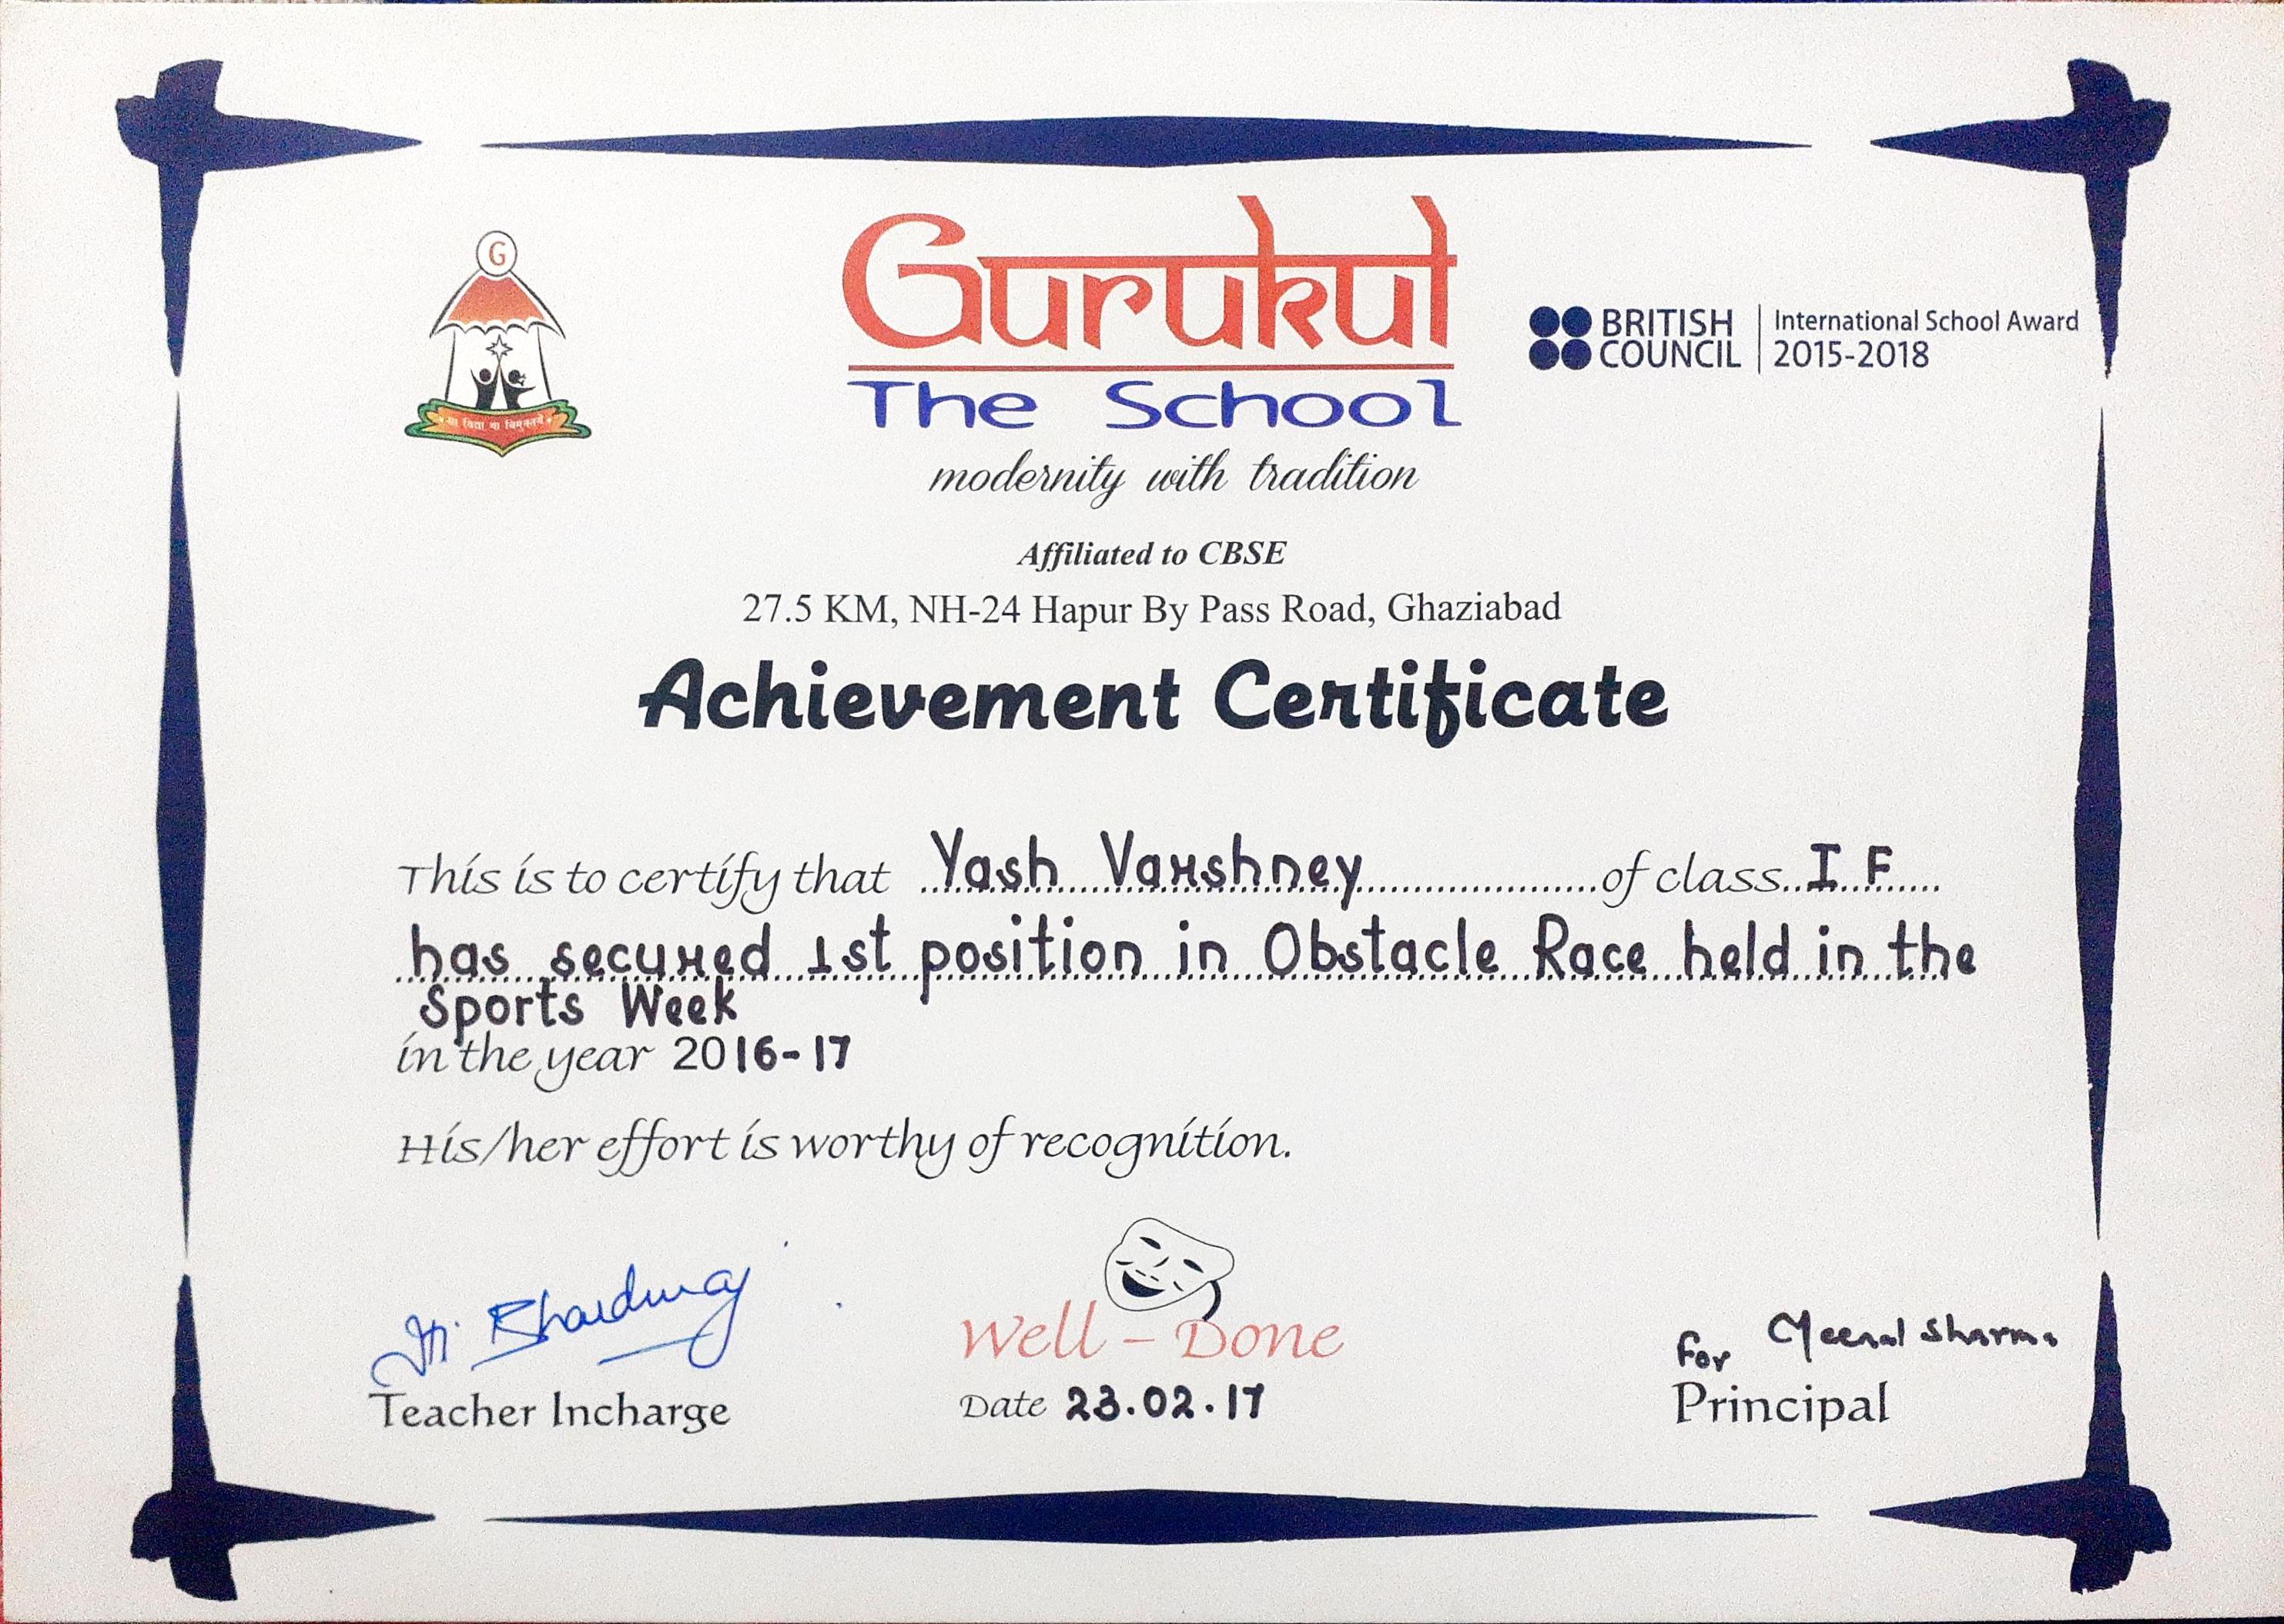 G
Gurukul
The School
modernity with tradition
BRITISH COUNCIL
International School Award
2015-2018
सा विद्या या विमुक्तये
Affiliated to CBSE
27.5 KM, NH-24 Hapur By Pass Road, Ghaziabad
Achievement Certificate
This is to certify that Yash Varshney of class I F
has secured 1st position in Obstacle Race held in the
Sports Week
in the year 2016-17
His/her effort is worthy of recognition.
Bhardwaj
Teacher Incharge
Well - Done
Date 23.02.17
for Meenal Sharma
Principal